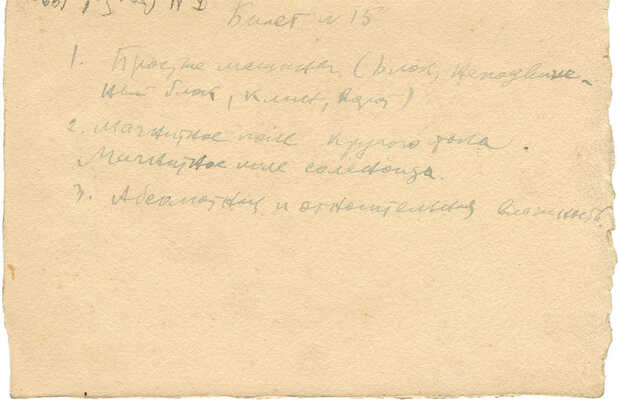 Билет № 15
1. Простые механизмы (блок, неподвиж-
ный блок, клин, ворот)
2. Магнитное поле кругового тока.
Магнитное поле соленоида.
3. Абсолютная и относительная влажность